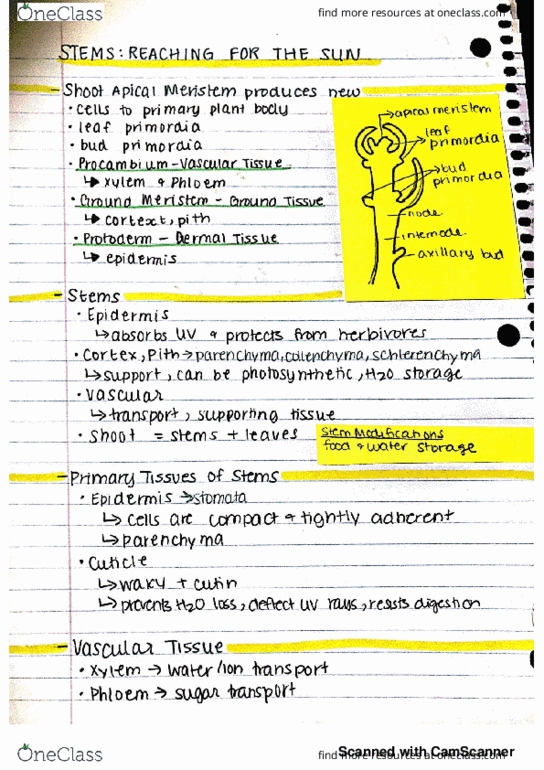 OneClass
find more resources at oneclass.com
STEMS: REACHING FOR THE SUN
- Shoot Apical Meristem produces new
• cells to primary plant body
• leaf primordia
• bud primordia
• Procambium - Vascular Tissue
↳ xylem & Phloem
• Ground Meristem - Ground Tissue
↳ cortext, pith
• Protoderm - Dermal Tissue
↳ epidermis
→ apical meristem
leaf
primordia
bud
primordia
node
internode
axillary bud
- Stems
• Epidermis
↳ absorbs UV & protects from herbivores
• Cortex, Pith → parenchyma, collenchyma, schlerenchyma
↳ support, can be photosynthetic, H2O storage
• Vascular
↳ transport, supporting tissue
• Shoot = stems + leaves
Stem Modifications
food & water storage
- Primary Tissues of Stems
• Epidermis → stomata
↳ cells are compact & tightly adherent
↳ parenchyma
• Cuticle
↳ waxy + cutin
↳ prevents H2O loss, deflect UV rays, resists digestion
- Vascular Tissue
• Xylem → water/ion transport
• Phloem → sugar transport
OneClass
find more resources at oneclass.com
Scanned with CamScanner